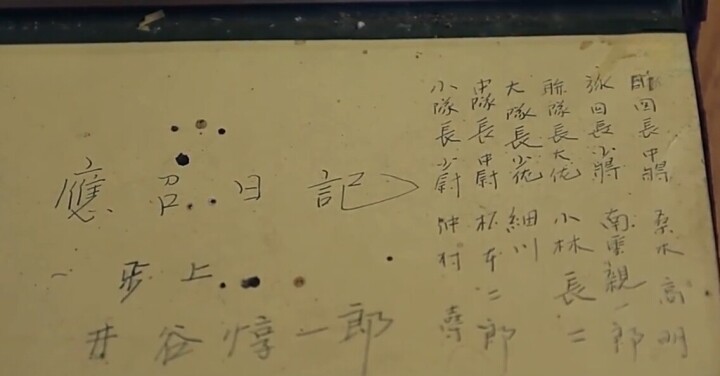 師団長中將 桑木高明
旅団長少將 南雲親一郎
聯隊長大佐 小林長二
大隊長少佐 細川
中隊長中尉 杉本二郎
小隊長少尉 仲村
應召日記
一歩上
井谷惇一郎